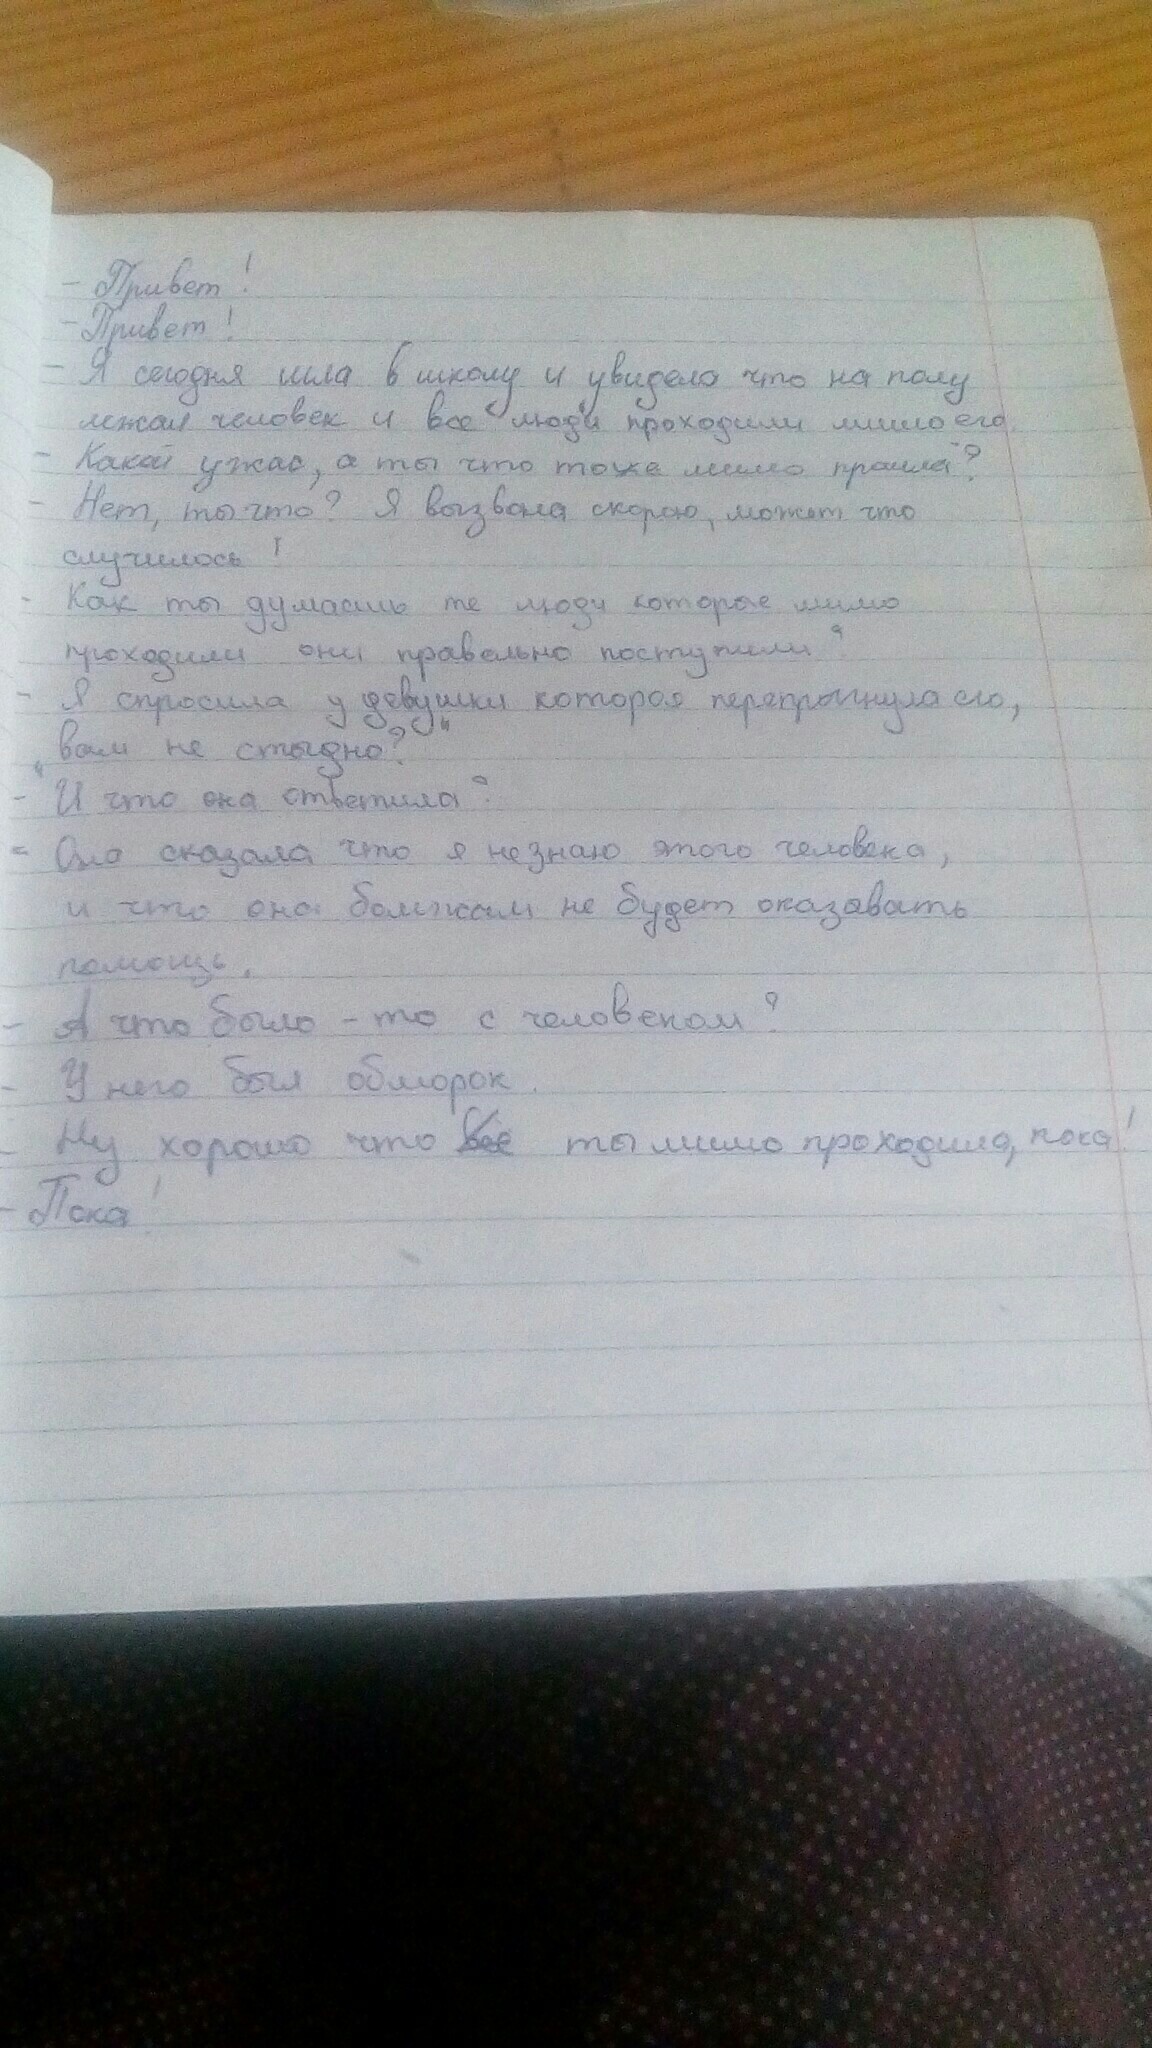 - Привет!
- Привет!
- Я сегодня шла в школу и увидела что на полу
лежал человек и все люди проходили мимо его.
- Какой ужас, а ты что тоже мимо прошла?
- Нет, ты что? Я вызвала скорою, может что
случилось!
- Как ты думаешь те люди которые мимо
проходили они правельно поступили?
- Я спросила у девушки которая перепрыгнула его,
"вам не стыдно?"
- И что она ответила?
- Она сказала что я незнаю этого человека,
и что она бомжам не будет оказавать
помощь.
- А что было - то с человеком?
- У него был обморок.
- Ну хорошо что ты мимо проходила, пока!
- Пока!